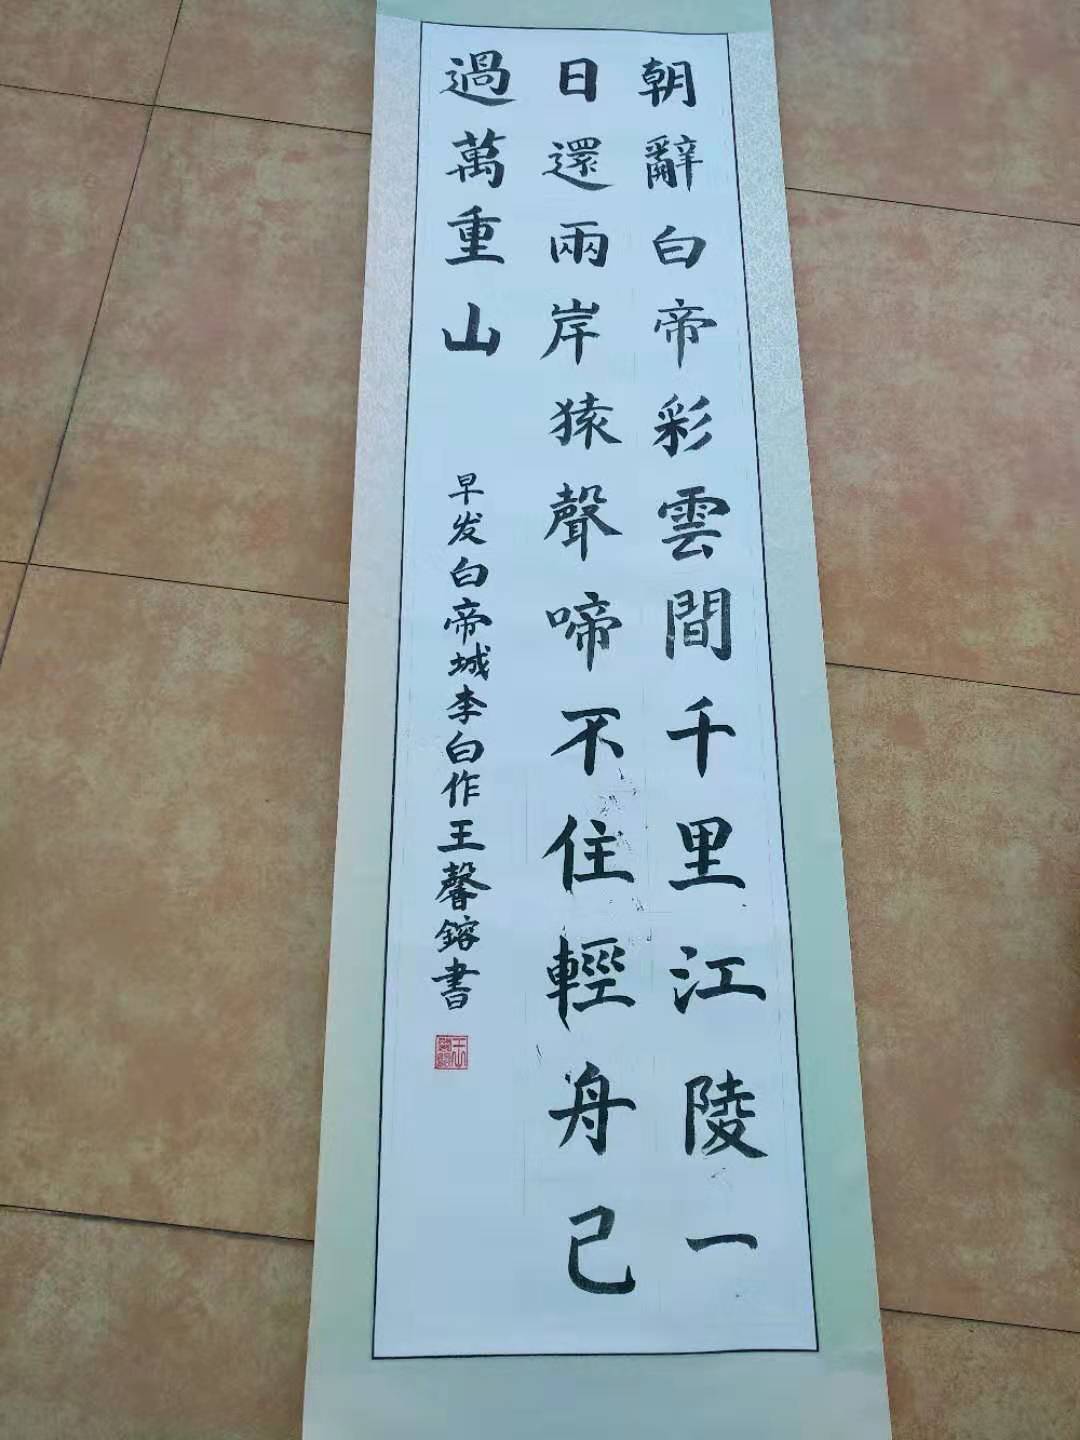 朝辭白帝彩雲間千里江陵一
日還兩岸猿聲啼不住輕舟已
過萬重山
早发白帝城李白作王馨鎔書